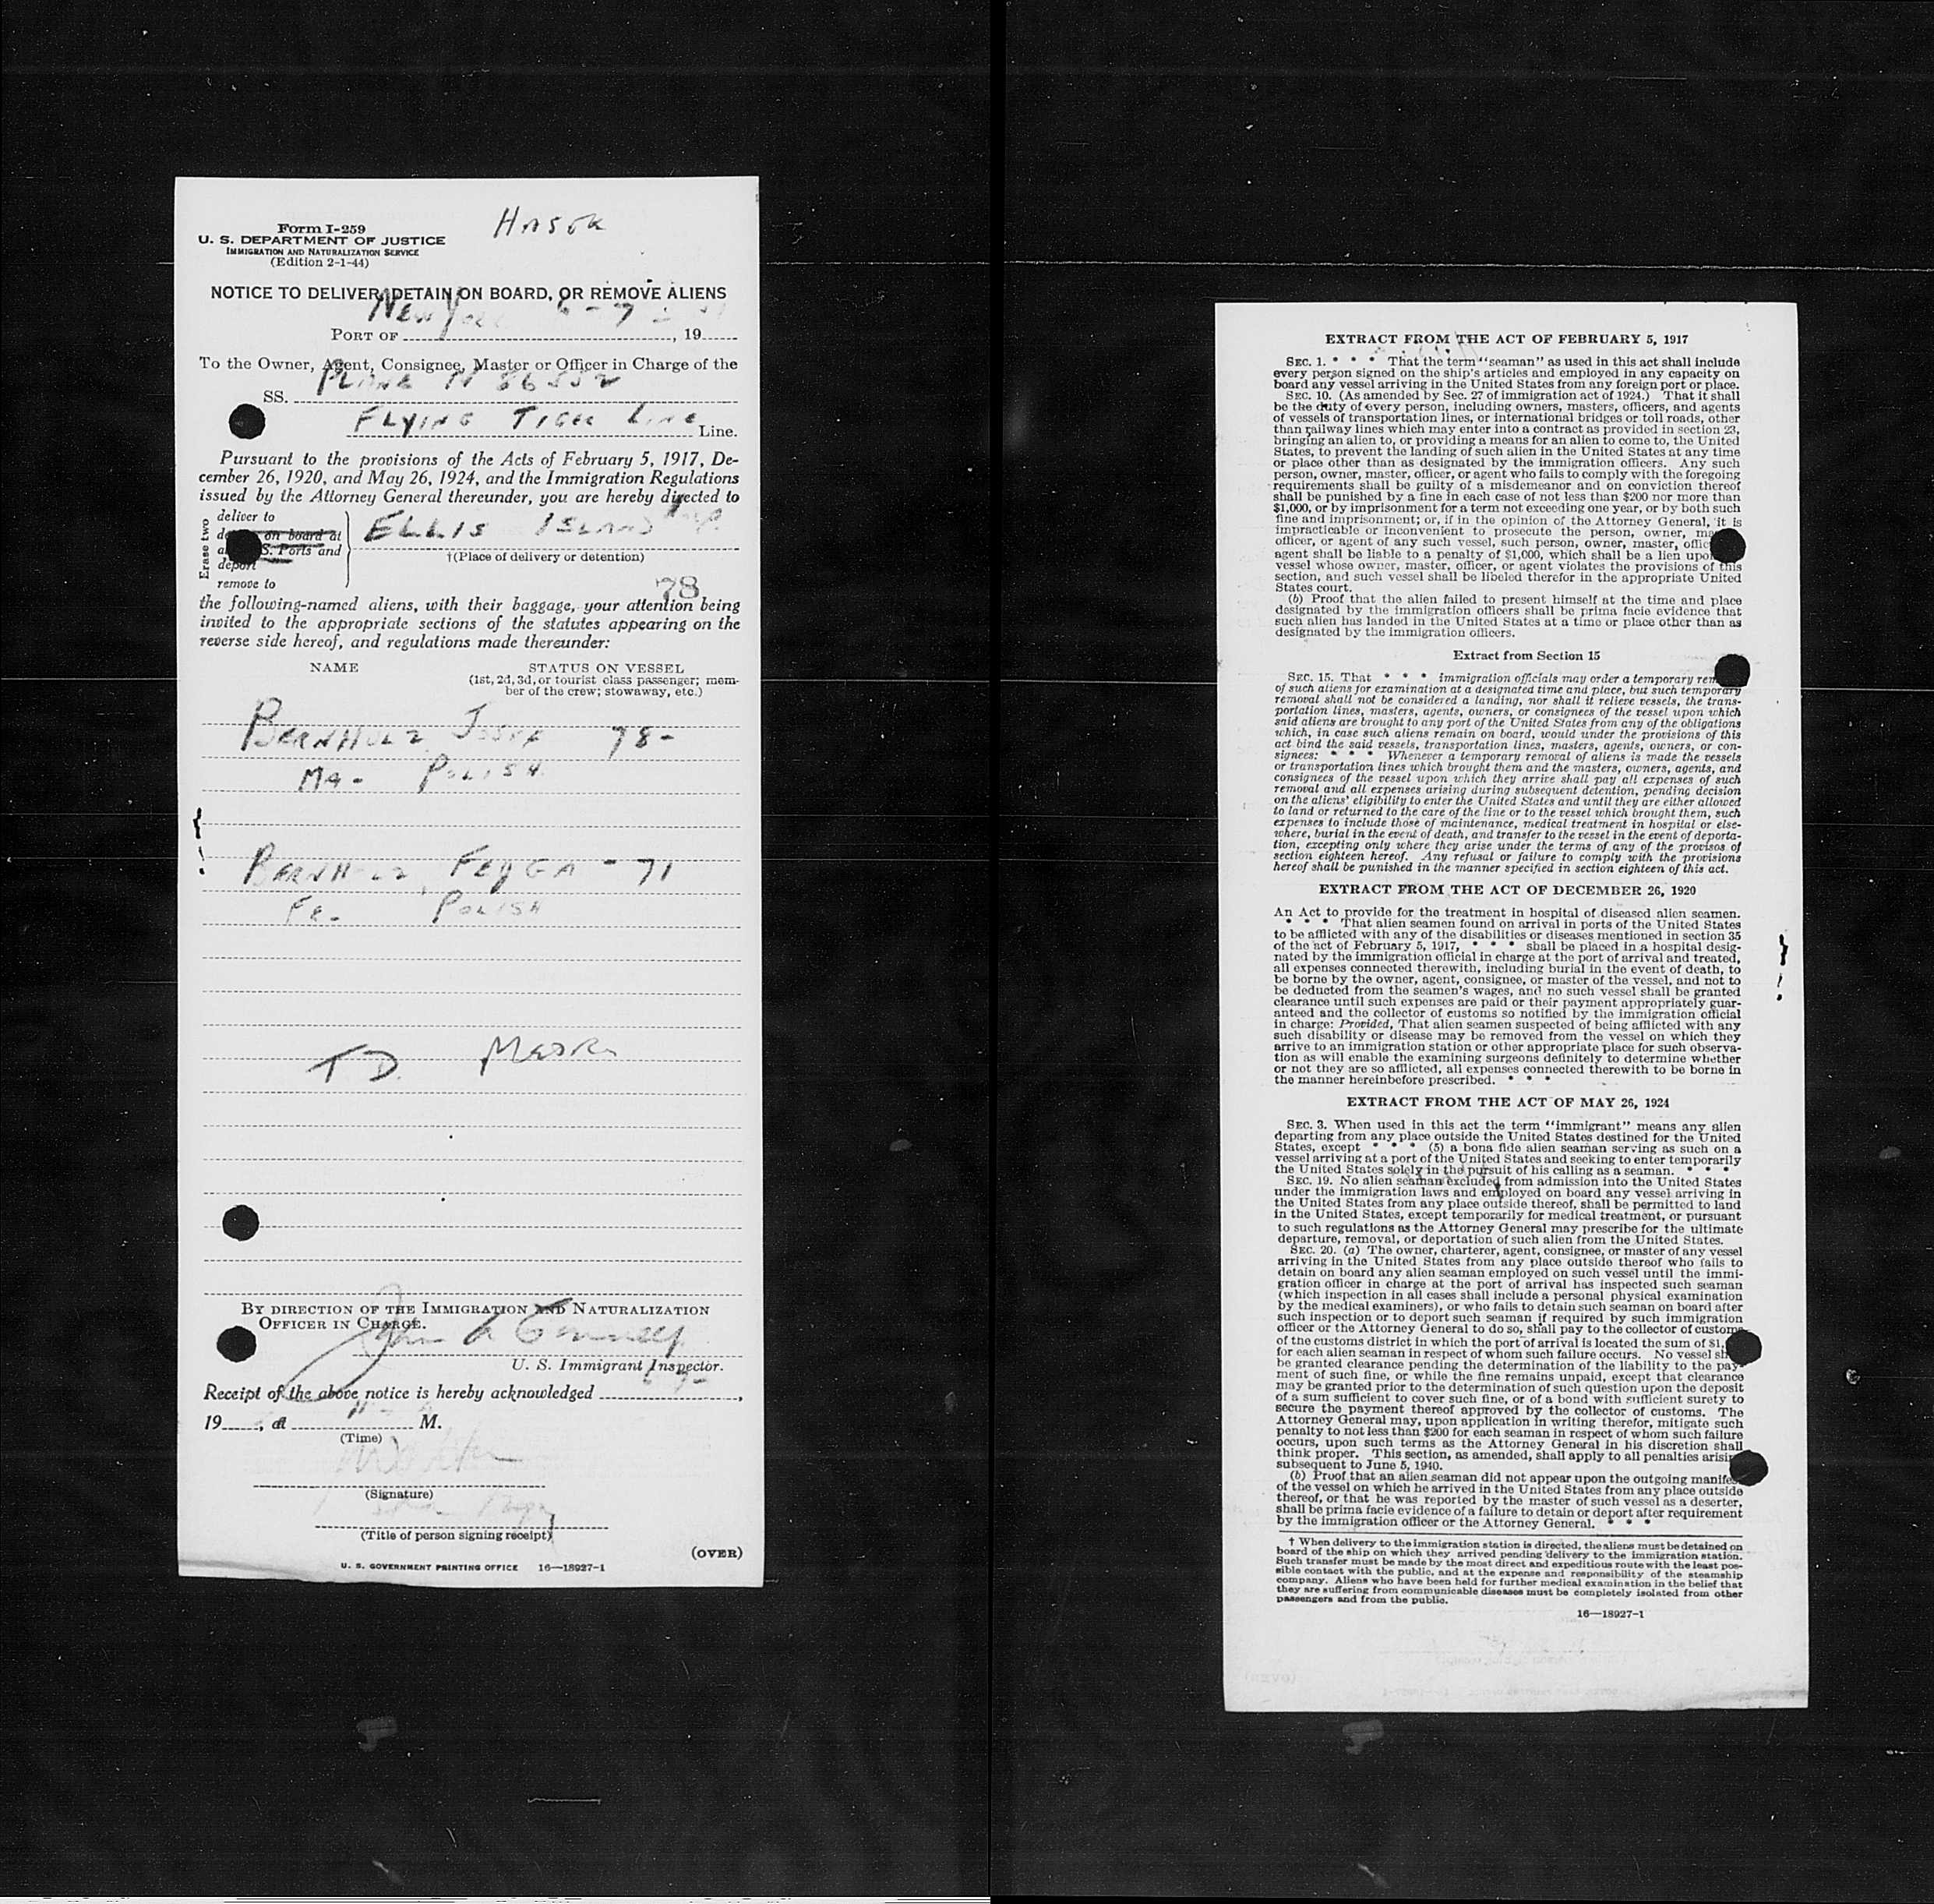 Form I-259
U. S. DEPARTMENT OF JUSTICE
IMMIGRATION AND NATURALIZATION SERVICE
(Edition 2-1-44)
NOTICE TO DELIVER, DETAIN ON BOARD, OR REMOVE ALIENS
New York 6-7
PORT OF , 19
To the Owner, Agent, Consignee, Master or Officer in Charge of the
SS. PLANE N
FLYING TIGER LINE Line.
Pursuant to the provisions of the Acts of February 5, 1917, De-
cember 26, 1920, and May 26, 1924, and the Immigration Regulations
issued by the Attorney General thereunder, you are hereby directed to
Erase two
deliver to
on board at
S. Ports and
deport
remove to
ELLIS ISLAND
†(Place of delivery or detention)
78
the following-named aliens, with their baggage, your attention being
invited to the appropriate sections of the statutes appearing on the
reverse side hereof, and regulations made thereunder:
NAME STATUS ON VESSEL
(1st, 2d, 3d, or tourist class passenger; mem-
ber of the crew; stowaway, etc.)
BERNHOLZ 78-
MA- POLISH
BERNHOLZ, FEYGA - 71
FE- POLISH
TD
BY DIRECTION OF THE IMMIGRATION AND NATURALIZATION
OFFICER IN CHARGE.
U. S. Immigrant Inspector.
Receipt of the above notice is hereby acknowledged ,
19 , at M.
(Time)
(Signature)
(Title of person signing receipt)
(OVER)
U. S. GOVERNMENT PRINTING OFFICE 16—18927-1
EXTRACT FROM THE ACT OF FEBRUARY 5, 1917
SEC. 1. * * * That the term "seaman" as used in this act shall include
every person signed on the ship's articles and employed in any capacity on
board any vessel arriving in the United States from any foreign port or place.
SEC. 10. (As amended by Sec. 27 of immigration act of 1924.) That it shall
be the duty of every person, including owners, masters, officers, and agents
of vessels of transportation lines, or international bridges or toll roads, other
than railway lines which may enter into a contract as provided in section 23,
bringing an alien to, or providing a means for an alien to come to, the United
States, to prevent the landing of such alien in the United States at any time
or place other than as designated by the immigration officers. Any such
person, owner, master, officer, or agent who fails to comply with the foregoing
requirements shall be guilty of a misdemeanor and on conviction thereof
shall be punished by a fine in each case of not less than $200 nor more than
$1,000, or by imprisonment for a term not exceeding one year, or by both such
fine and imprisonment; or, if in the opinion of the Attorney General, it is
impracticable or inconvenient to prosecute the person, owner,
officer, or agent of any such vessel, such person, owner, master,
agent shall be liable to a penalty of $1,000, which shall be a lien upon
vessel whose owner, master, officer, or agent violates the provisions of this
section, and such vessel shall be libeled therefor in the appropriate United
States court.
(b) Proof that the alien failed to present himself at the time and place
designated by the immigration officers shall be prima facie evidence that
such alien has landed in the United States at a time or place other than as
designated by the immigration officers.
Extract from Section 15
SEC. 15. That * * * immigration officials may order a temporary
of such aliens for examination at a designated time and place, but such temporary
removal shall not be considered a landing, nor shall it relieve vessels, the trans-
portation lines, masters, agents, owners, or consignees of the vessel upon which
said aliens are brought to any port of the United States from any of the obligations
which, in case such aliens remain on board, would under the provisions of this
act bind the said vessels, transportation lines, masters, agents, owners, or con-
signees: * * * Whenever a temporary removal of aliens is made the vessels
or transportation lines which brought them and the masters, owners, agents, and
consignees of the vessel upon which they arrive shall pay all expenses of such
removal and all expenses arising during subsequent detention, pending decision
on the aliens' eligibility to enter the United States and until they are either allowed
to land or returned to the care of the line or to the vessel which brought them, such
expenses to include those of maintenance, medical treatment in hospital or else-
where, burial in the event of death, and transfer to the vessel in the event of deporta-
tion, excepting only where they arise under the terms of any of the provisos of
section eighteen hereof. Any refusal or failure to comply with the provisions
hereof shall be punished in the manner specified in section eighteen of this act.
EXTRACT FROM THE ACT OF DECEMBER 26, 1920
An Act to provide for the treatment in hospital of diseased alien seamen.
* * * That alien seamen found on arrival in ports of the United States
to be afflicted with any of the disabilities or diseases mentioned in section 35
of the act of February 5, 1917, * * * shall be placed in a hospital desig-
nated by the immigration official in charge at the port of arrival and treated,
all expenses connected therewith, including burial in the event of death, to
be borne by the owner, agent, consignee, or master of the vessel, and not to
be deducted from the seamen's wages, and no such vessel shall be granted
clearance until such expenses are paid or their payment appropriately guar-
anteed and the collector of customs so notified by the immigration official
in charge: Provided, That alien seamen suspected of being afflicted with any
such disability or disease may be removed from the vessel on which they
arrive to an immigration station or other appropriate place for such observa-
tion as will enable the examining surgeons definitely to determine whether
or not they are so afflicted, all expenses connected therewith to be borne in
the manner hereinbefore prescribed. * * *
EXTRACT FROM THE ACT OF MAY 26, 1924
SEC. 3. When used in this act the term "immigrant" means any alien
departing from any place outside the United States destined for the United
States, except * * * (5) a bona fide alien seaman serving as such on a
vessel arriving at a port of the United States and seeking to enter temporarily
the United States solely in the pursuit of his calling as a seaman. * * *
SEC. 19. No alien seaman excluded from admission into the United States
under the immigration laws and employed on board any vessel arriving in
the United States from any place outside thereof, shall be permitted to land
in the United States, except temporarily for medical treatment, or pursuant
to such regulations as the Attorney General may prescribe for the ultimate
departure, removal, or deportation of such alien from the United States.
SEC. 20. (a) The owner, charterer, agent, consignee, or master of any vessel
arriving in the United States from any place outside thereof who fails to
detain on board any alien seaman employed on such vessel until the immi-
gration officer in charge at the port of arrival has inspected such seaman
(which inspection in all cases shall include a personal physical examination
by the medical examiners), or who fails to detain such seaman on board after
such inspection or to deport such seaman if required by such immigration
officer or the Attorney General to do so, shall pay to the collector of customs
of the customs district in which the port of arrival is located the sum of
for each alien seaman in respect of whom such failure occurs. No vessel
be granted clearance pending the determination of the liability to the pay-
ment of such fine, or while the fine remains unpaid, except that clearance
may be granted prior to the determination of such question upon the deposit
of a sum sufficient to cover such fine, or of a bond with sufficient surety to
secure the payment thereof approved by the collector of customs. The
Attorney General may, upon application in writing therefor, mitigate such
penalty to not less than $200 for each seaman in respect of whom such failure
occurs, upon such terms as the Attorney General in his discretion shall
think proper. This section, as amended, shall apply to all penalties
subsequent to June 5, 1940.
(b) Proof that an alien seaman did not appear upon the outgoing
of the vessel on which he arrived in the United States from any place outside
thereof, or that he was reported by the master of such vessel as a deserter,
shall be prima facie evidence of a failure to detain or deport after requirement
by the immigration officer or the Attorney General. * * *
† When delivery to the immigration station is directed, the aliens must be detained on
board of the ship on which they arrived pending delivery to the immigration station.
Such transfer must be made by the most direct and expeditious route with the least pos-
sible contact with the public, and at the expense and responsibility of the steamship
company. Aliens who have been held for further medical examination in the belief that
they are suffering from communicable diseases must be completely isolated from other
passengers and from the public.
16—18927-1